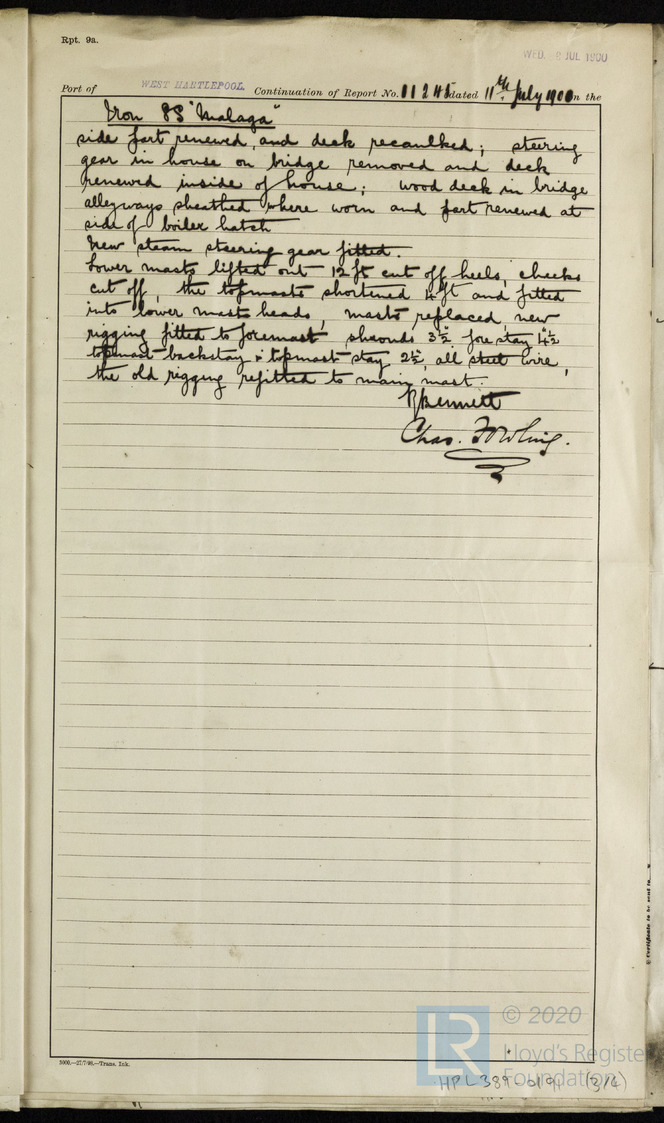 Rpt. 9a.
WED. JUL 1900
Port of WEST HARTLEPOOL. Continuation of Report No. 11245 dated 11th July 1900 on the
Iron SS "Malaga"
side part renewed and deck recaulked; steering
gear in house on bridge removed and deck
renewed inside of house; wood deck in bridge
alleyways sheathed where worn and part renewed at
side of boiler hatch
New steam steering gear fitted.
Lower masts lifted out 12 ft cut off heels, cheeks
cut off, the topmasts shortened 4 ft and fitted
into lower masts heads, masts replaced, new
rigging fitted to foremast shrouds 3½" fore stay 4½"
topmast backstay & topmast stay 2½", all steel wire,
the old rigging refitted to main mast.
R Bennett
Chas.
5000.—27/7/98.—Trans. Ink.
© Certificate to be sent to
LR
© 2020
Lloyd's Register
Foundation
HPL389-0191 (3/4)